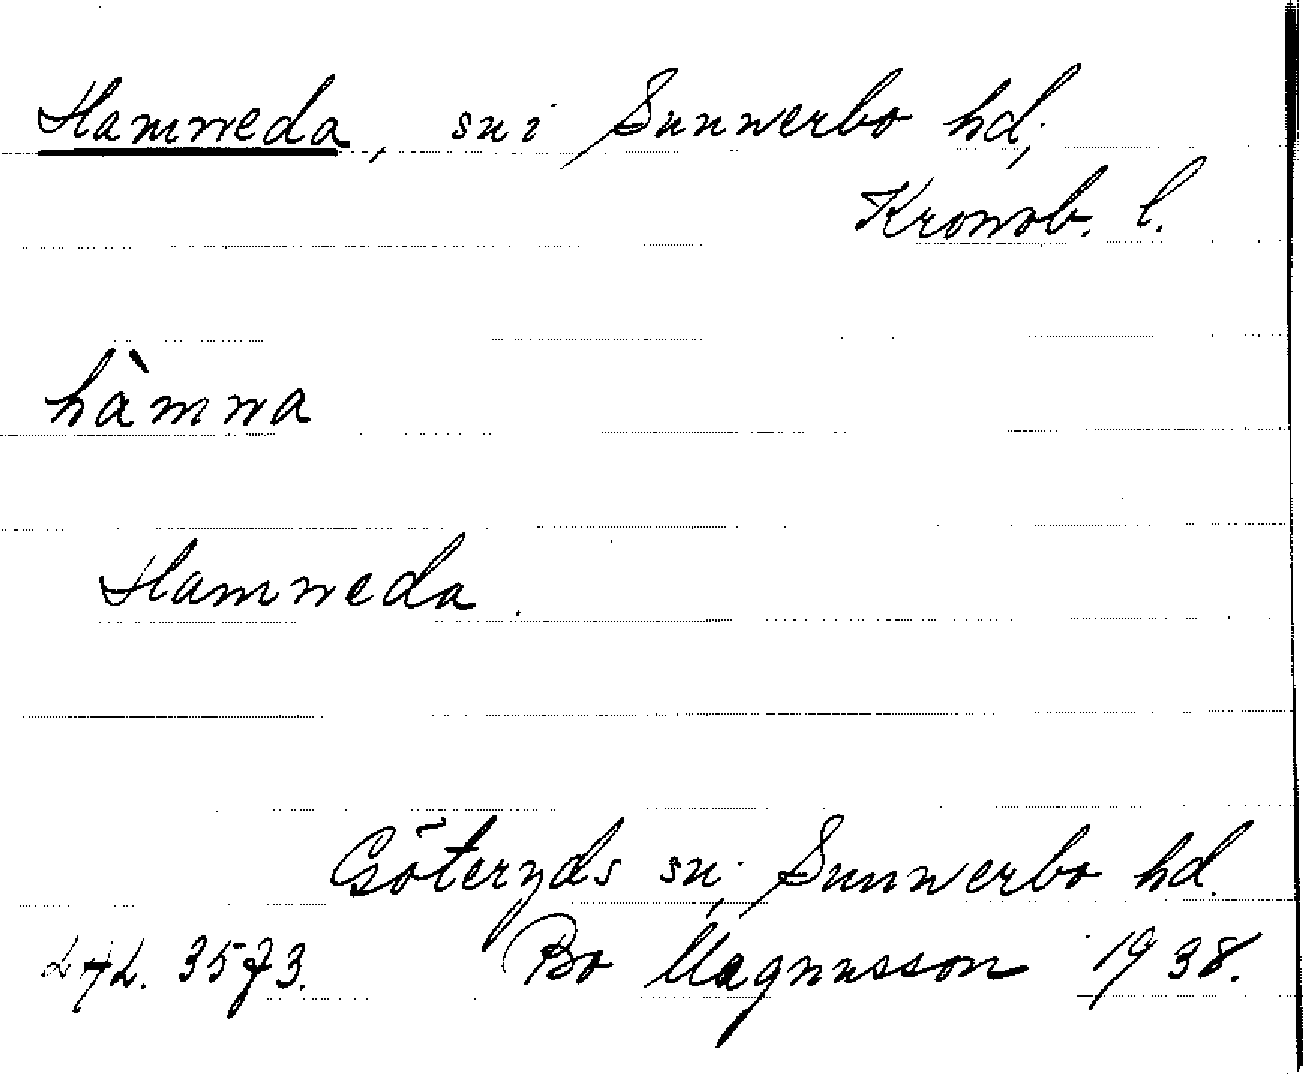 Hamneda, sn i Sunnerbo hd,
Kronob. l.
hàmna
Hamneda.
Göteryds sn, Sunnerbo hd.
LAL. 3573. Bo Magnusson 1938.